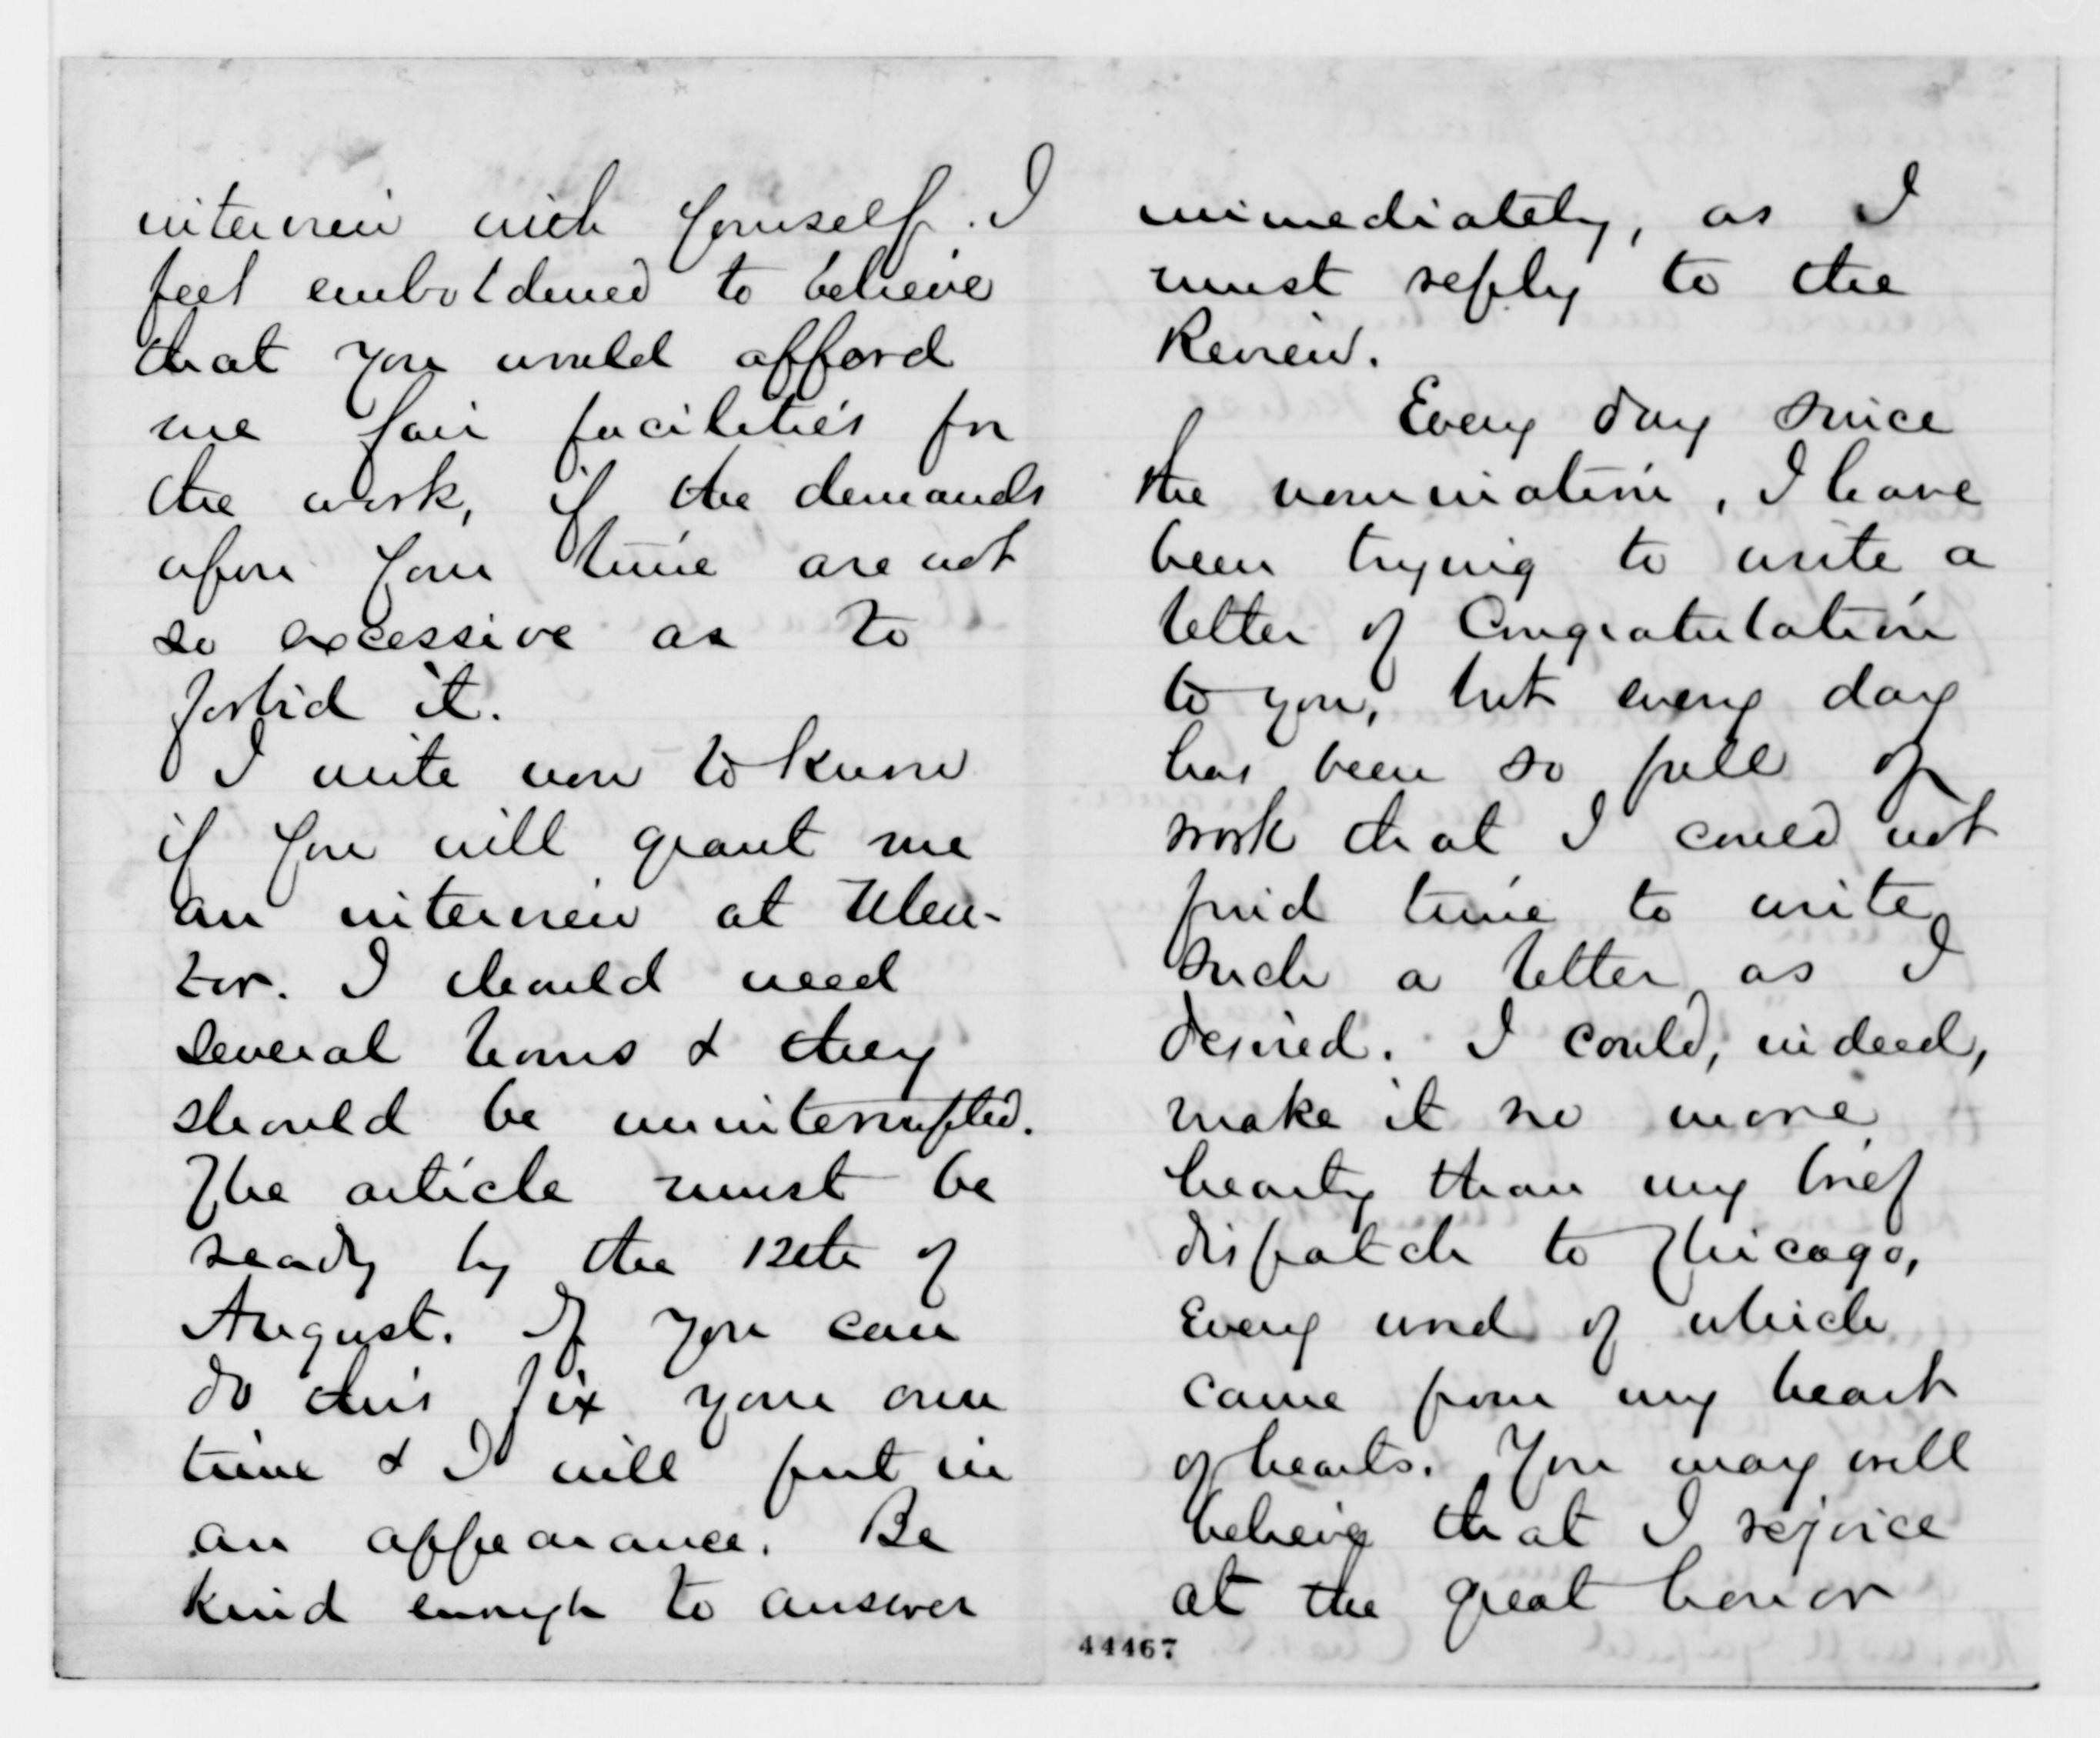 interview with yourself. I
feel emboldened to believe
that you would afford
me fair facilities for
the work, if the demands
upon your time are not
so excessive as to
forbid it.
I write now to know
if you will grant me
an interview at Men-
tor. I should need
several hours & they
should be uninterrupted.
The article must be
ready by the 12th of
August. If you can
do this fix your own
time & I will put in
an appearance. Be
kind enough to answer
immediately, as I
must reply to the
Review.
Every day since
the nomination, I have
been trying to write a
letter of Congratulation
to you, but every day
has been so full of
work that I could not
find time to write
such a letter as I
desired. I could, indeed,
make it no more
hearty than my brief
dispatch to Chicago,
every word of which
came from my heart
of hearts. You may well
believe that I rejoice
at the great honor
44467